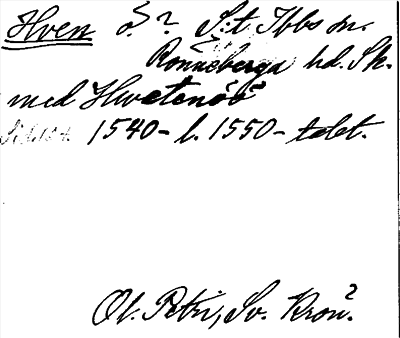 Hven ö.? S:t Ibbs sn.
Rönneberga hd. Sk.
med Hwetenöö
1540- l. 1550- talet.
Ol. Petri, Sv. Krön.